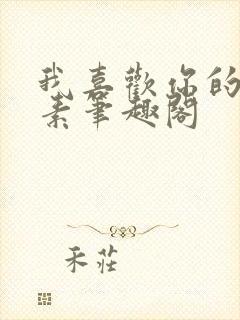 我喜歡你的
素筆趣閣
禾莊